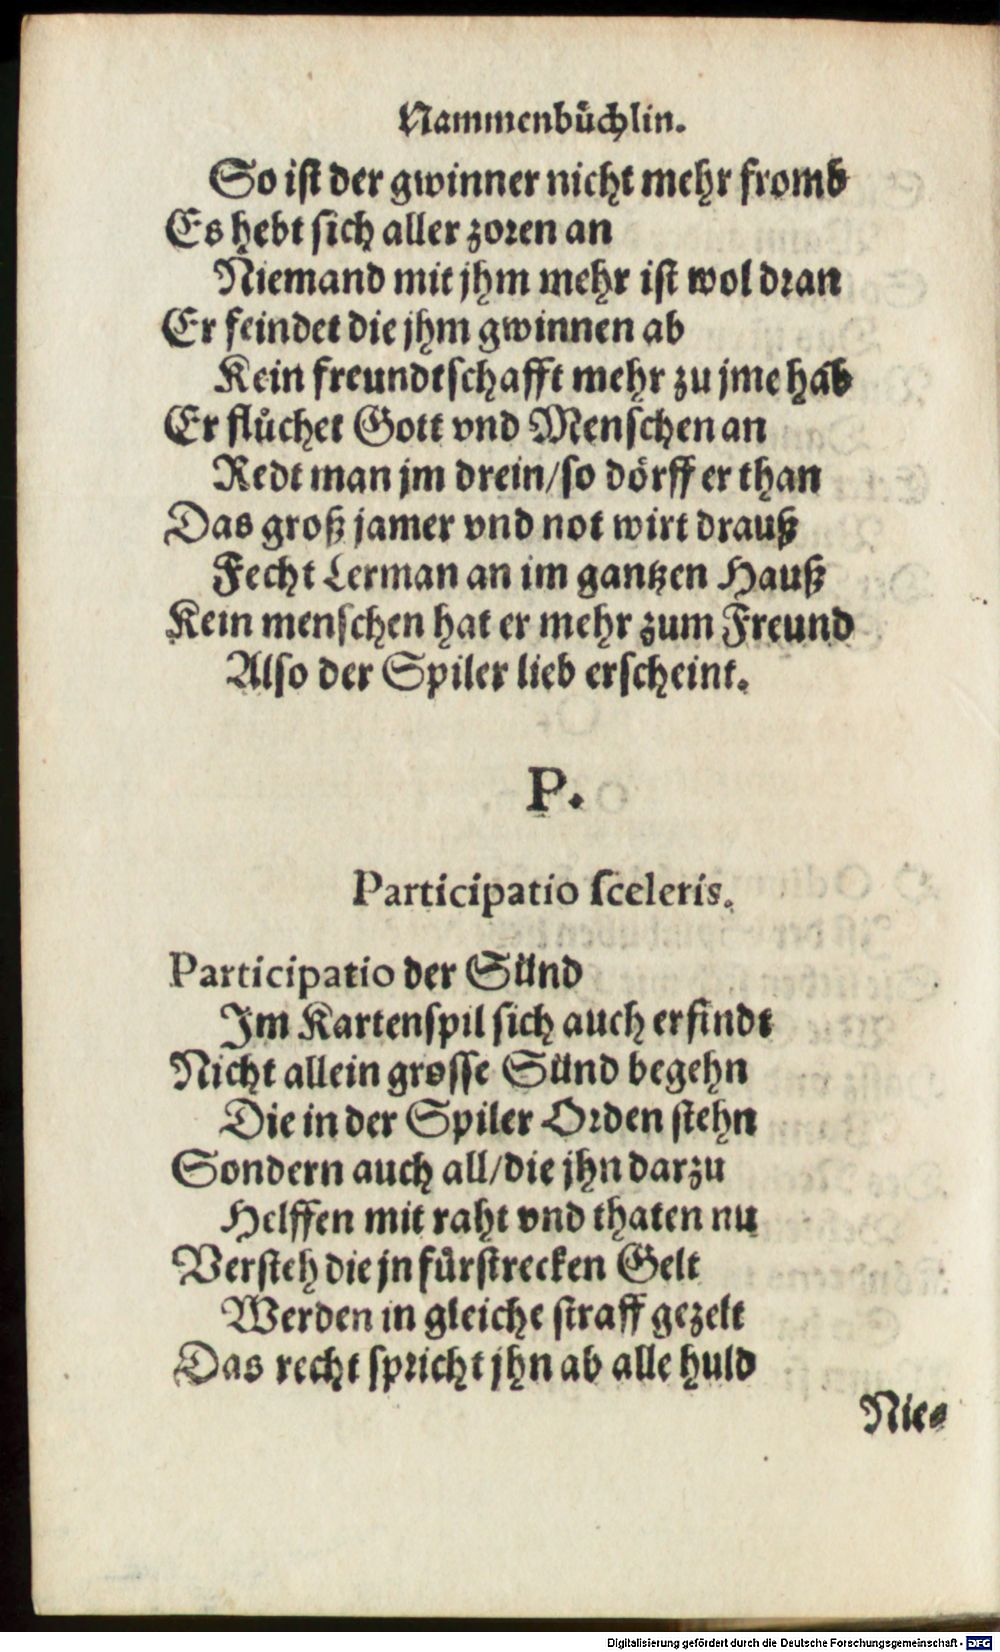 Nammenbuͤchlin.
So iſt der gwinner nicht mehr fromb
Es hebt ſich aller zoꝛen an
Niemand mit jhm mehr iſt wol dꝛan
Er feindet die jhm gwinnen ab
Kein freundtſchafft mehr zu jme hab
Er fluͤchet Gott vnd Menſchen an
Redt man jm drein/ſo doͤrff er than
Das groß jamer vnd not wirt drauß
Fecht Lerman an im gantzen Hauß
Kein menſchen hat er mehr zum Freund
Alſo der Spiler lieb erſcheint.
P.
Participatio ſceleris.
Participatio der Suͤnd
Im Kartenſpil ſich auch erfindt
Nicht allein groſſe Suͤnd begehn
Die in der Spiler Oꝛden ſtehn
Sondern auch all/die jhn darzu
Helffen mit raht vnd thaten nu
Verſteh die jn fuͤrſtrecken Gelt
Werden in gleiche ſtraff gezelt
Das recht ſpꝛicht jhn ab alle huld
Nie⸗
Digitalisierung gefördert durch die Deutsche Forschungsgemeinschaft - DFG